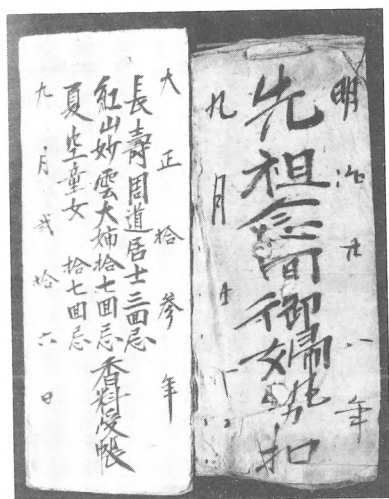 明治廿八年
先祖念回御
九月廿
大正拾參年
長壽周道居士三回忌
紅山妙雲大姉拾七回忌
夏空童女 拾七回忌
香料受帳
九月弐拾六日